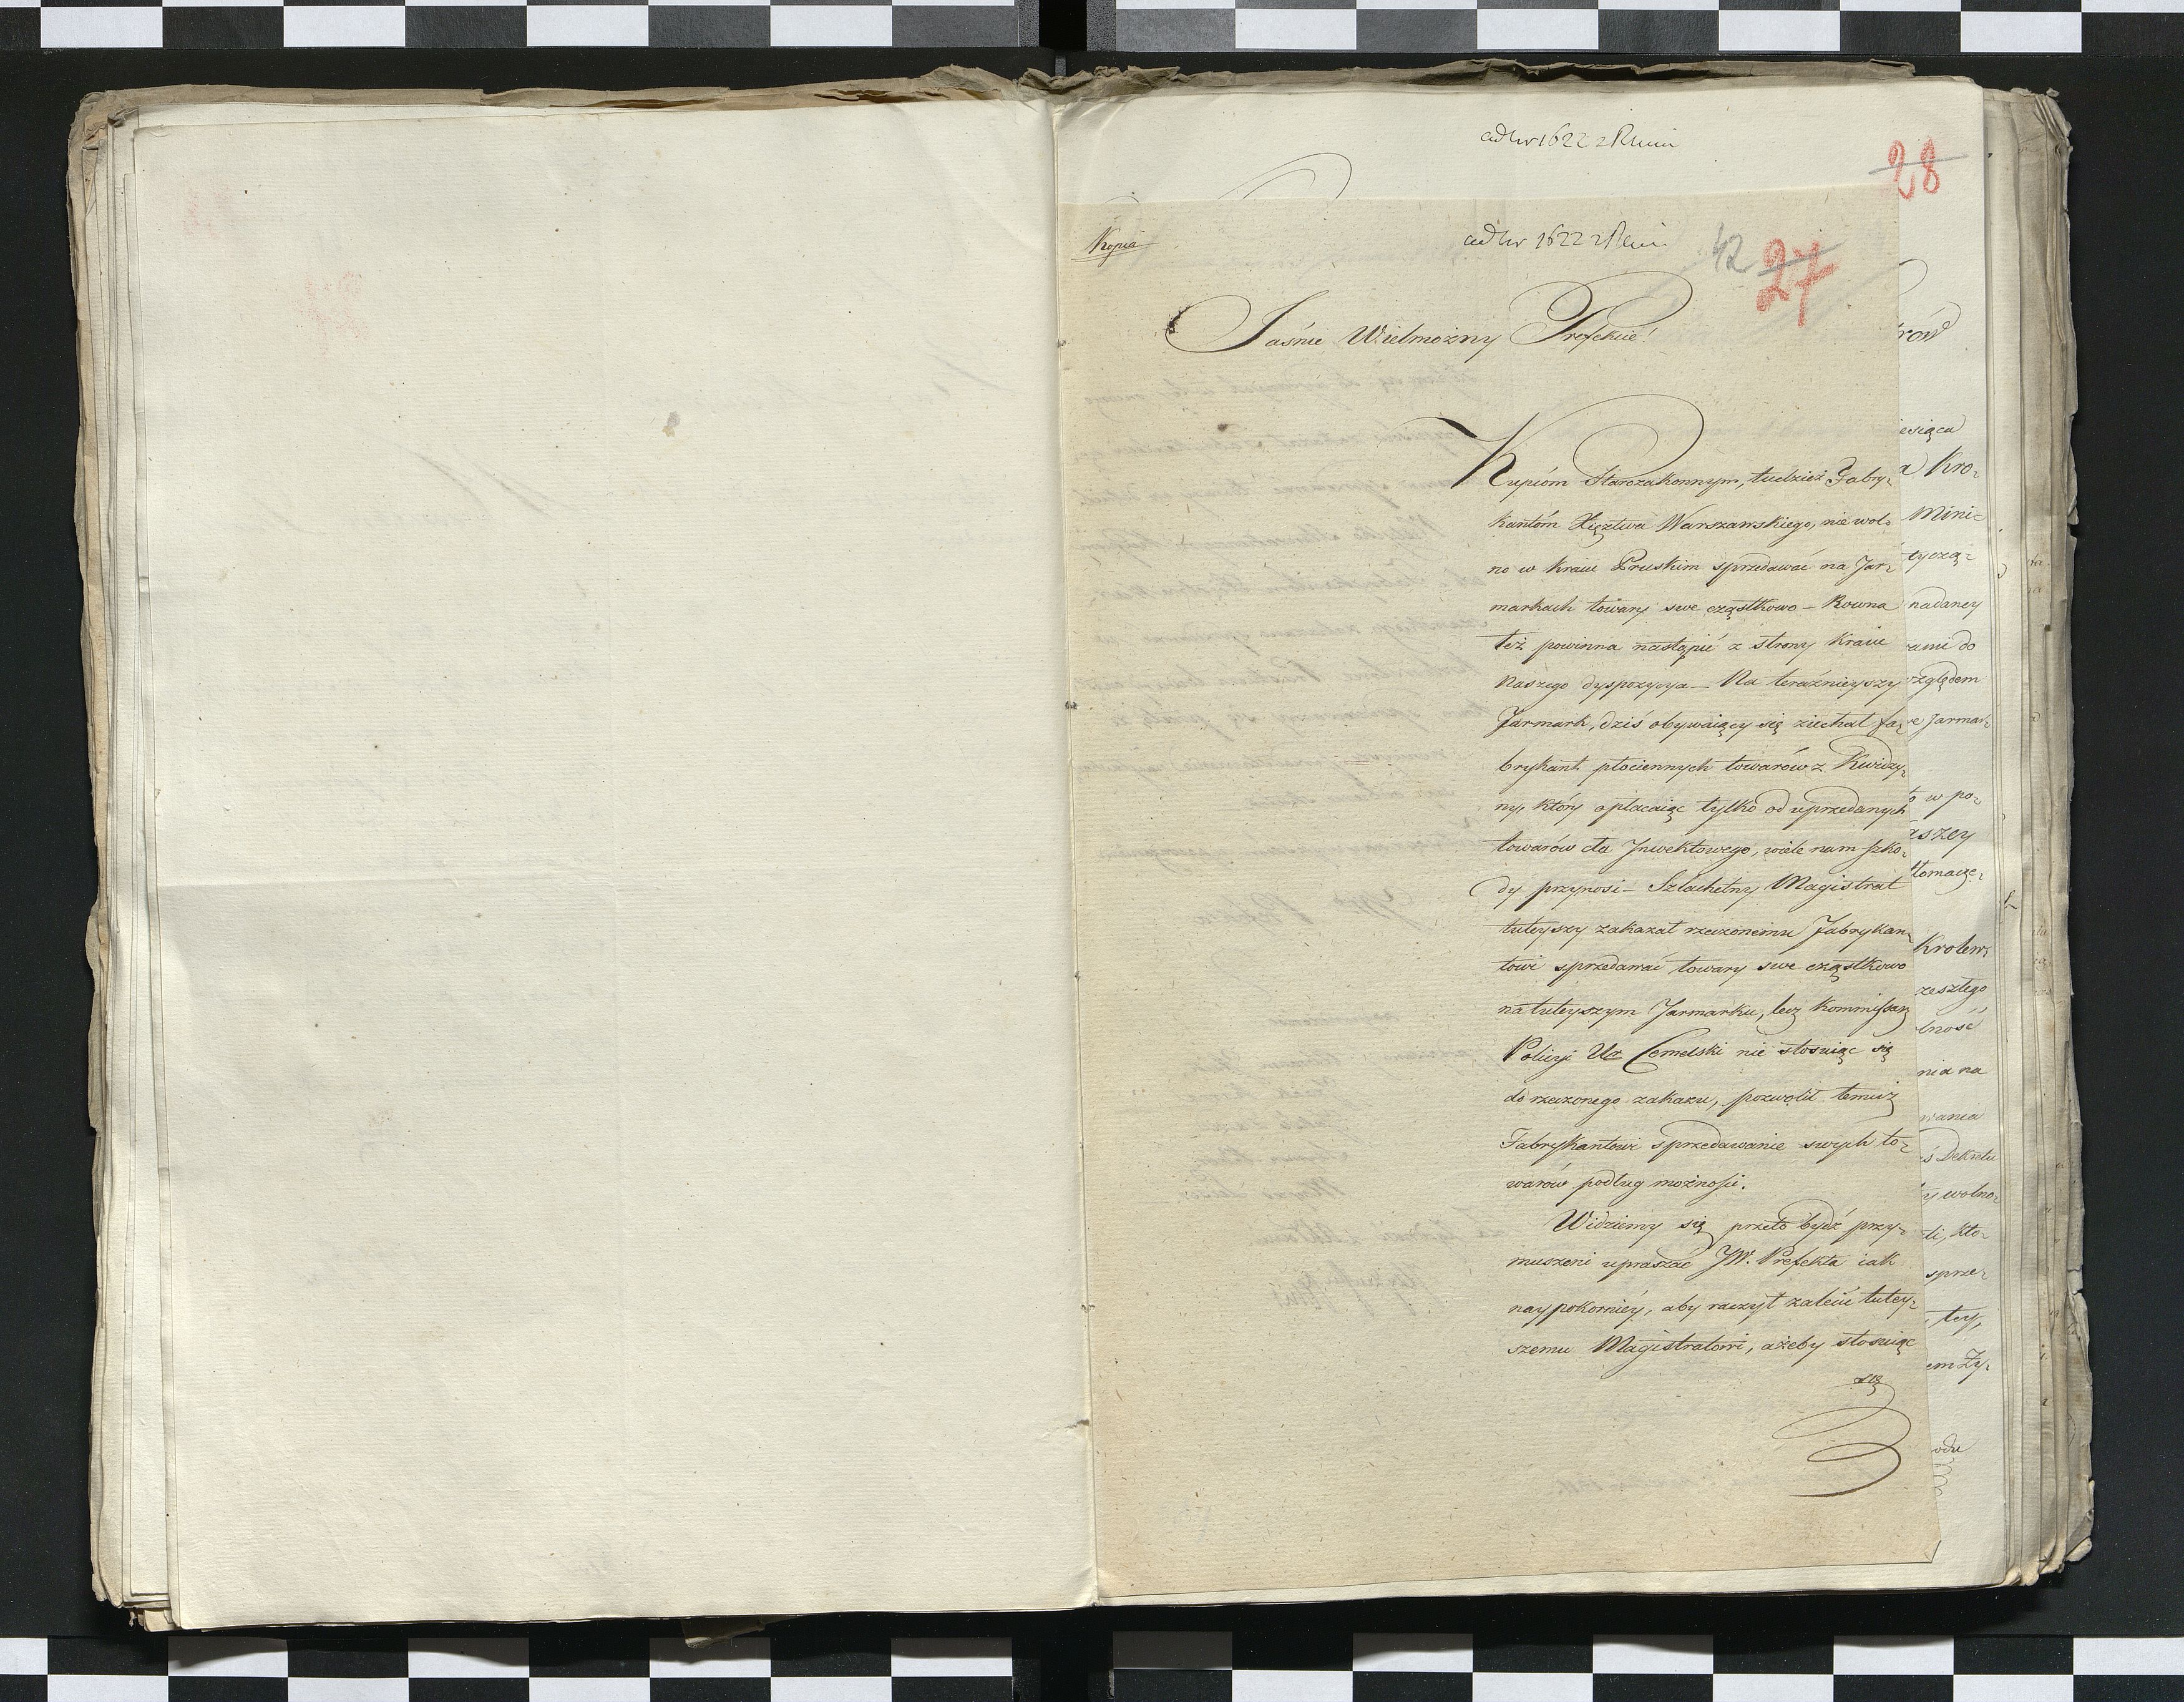 28
Kopia
42 27
Jaśnie Wielmożny Prefekcie!
Kupióm Starozakonnym, tudzież Fabry-
kantóm Xięztwa Warszawskiego, nie wol-
no w Kraiu Pruskim sprzedawać na Jar-
markach towary swe cząstkowo – Rowna
też powinna nastąpić z strony Kraiu
Naszego dyspozycya – Na teraźnieyszy
Jarmark, dziś obywaiący się ziechał fa-
brykant płociennych towarów z Kwidzy-
ny, który opłacaiąc tylko od uprzedanych
towarów cła Inwektowego, wiele nam szko-
dy przynosi – Szlachetny Magistrat
tuteyszy zakazał rzeczonemu Fabrykan-
towi sprzedawać towary swe cząstkowo
na tuteyszym Jarmarku, lecz Kommissarz
Policyi Ur Cemelski nie stosuiąc się
do rzeczonego zakazu, pozwolił temuż
Fabrykantowi sprzedawanie swych to-
warów podług możności.
Widziemy się przeto bydź przy-
muszeni upraszać JW. Prefekta iak
naypokorniéy, aby raczył zalecić tutey-
szemu Magistratowi, ażeby stosuiąc
się
rów
esiąca
a Kro-
Mini-
tyczą-
nadaney
ami do
względem
we Jarmar-
o w po-
aszey
tłomacze-
Krolew-
zeszłego
lność
nia na
wania
ś Dekretu
y wolno-
li, kto-
sprze-
, tey,
em Zy-
odu